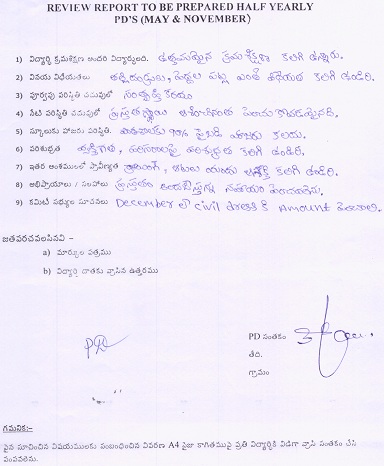 REVIEW REPORT TO BE PREPARED HALF YEARLY
PD'S (MAY & NOVEMBER)
1) విద్యార్థి క్రమశిక్షణ అందరి విద్యార్థులది. ఉత్తమమైన క్రమశిక్షణ కలిగి ఉన్నారు.
2) వినయ విధేయతలు తల్లిదండ్రులు, పెద్దల పట్ల ఎంతో విధేయత కలిగి ఉండిరి.
3) పూర్వపు పరిస్థితి చదువులో సంతృప్తికరము
4) నేటి పరిస్థితి చదువులో ప్రస్తుతస్థాయి
5) స్కూలుకు హాజరు పరిస్థితి. పాఠశాలకు 90% పైబడి హాజరు కలదు.
6) పరిశుభ్రత వ్యక్తిగత, పరిసరాలపై పరిశుభ్రత కలిగి ఉండిరి.
7) ఇతర అంశములలో ప్రావీణ్యత డ్రాయింగ్, ఆటలు యందు ఆసక్తి కలిగి ఉండిరి.
8) అభిప్రాయాలు / సలహాలు ప్రస్తుతం అందచేస్తున్న సహాయం పెంచవలెను.
9) కమిటీ సభ్యుల సూచనలు December లో civil dress కి Amount పెంచాలి.
జతపరచవలసినవి -
a) మార్కుల పత్రము
b) విద్యార్థి దాతకు వ్రాసిన ఉత్తరము
PD సంతకం
తేది.
గ్రామం
గమనిక:-
పైన సూచించిన విషయములకు సంబంధించిన వివరణ A4 సైజు కాగితముపై ప్రతి విద్యార్థికి విడిగా వ్రాసి సంతకం చేసి
పంపవలెను.